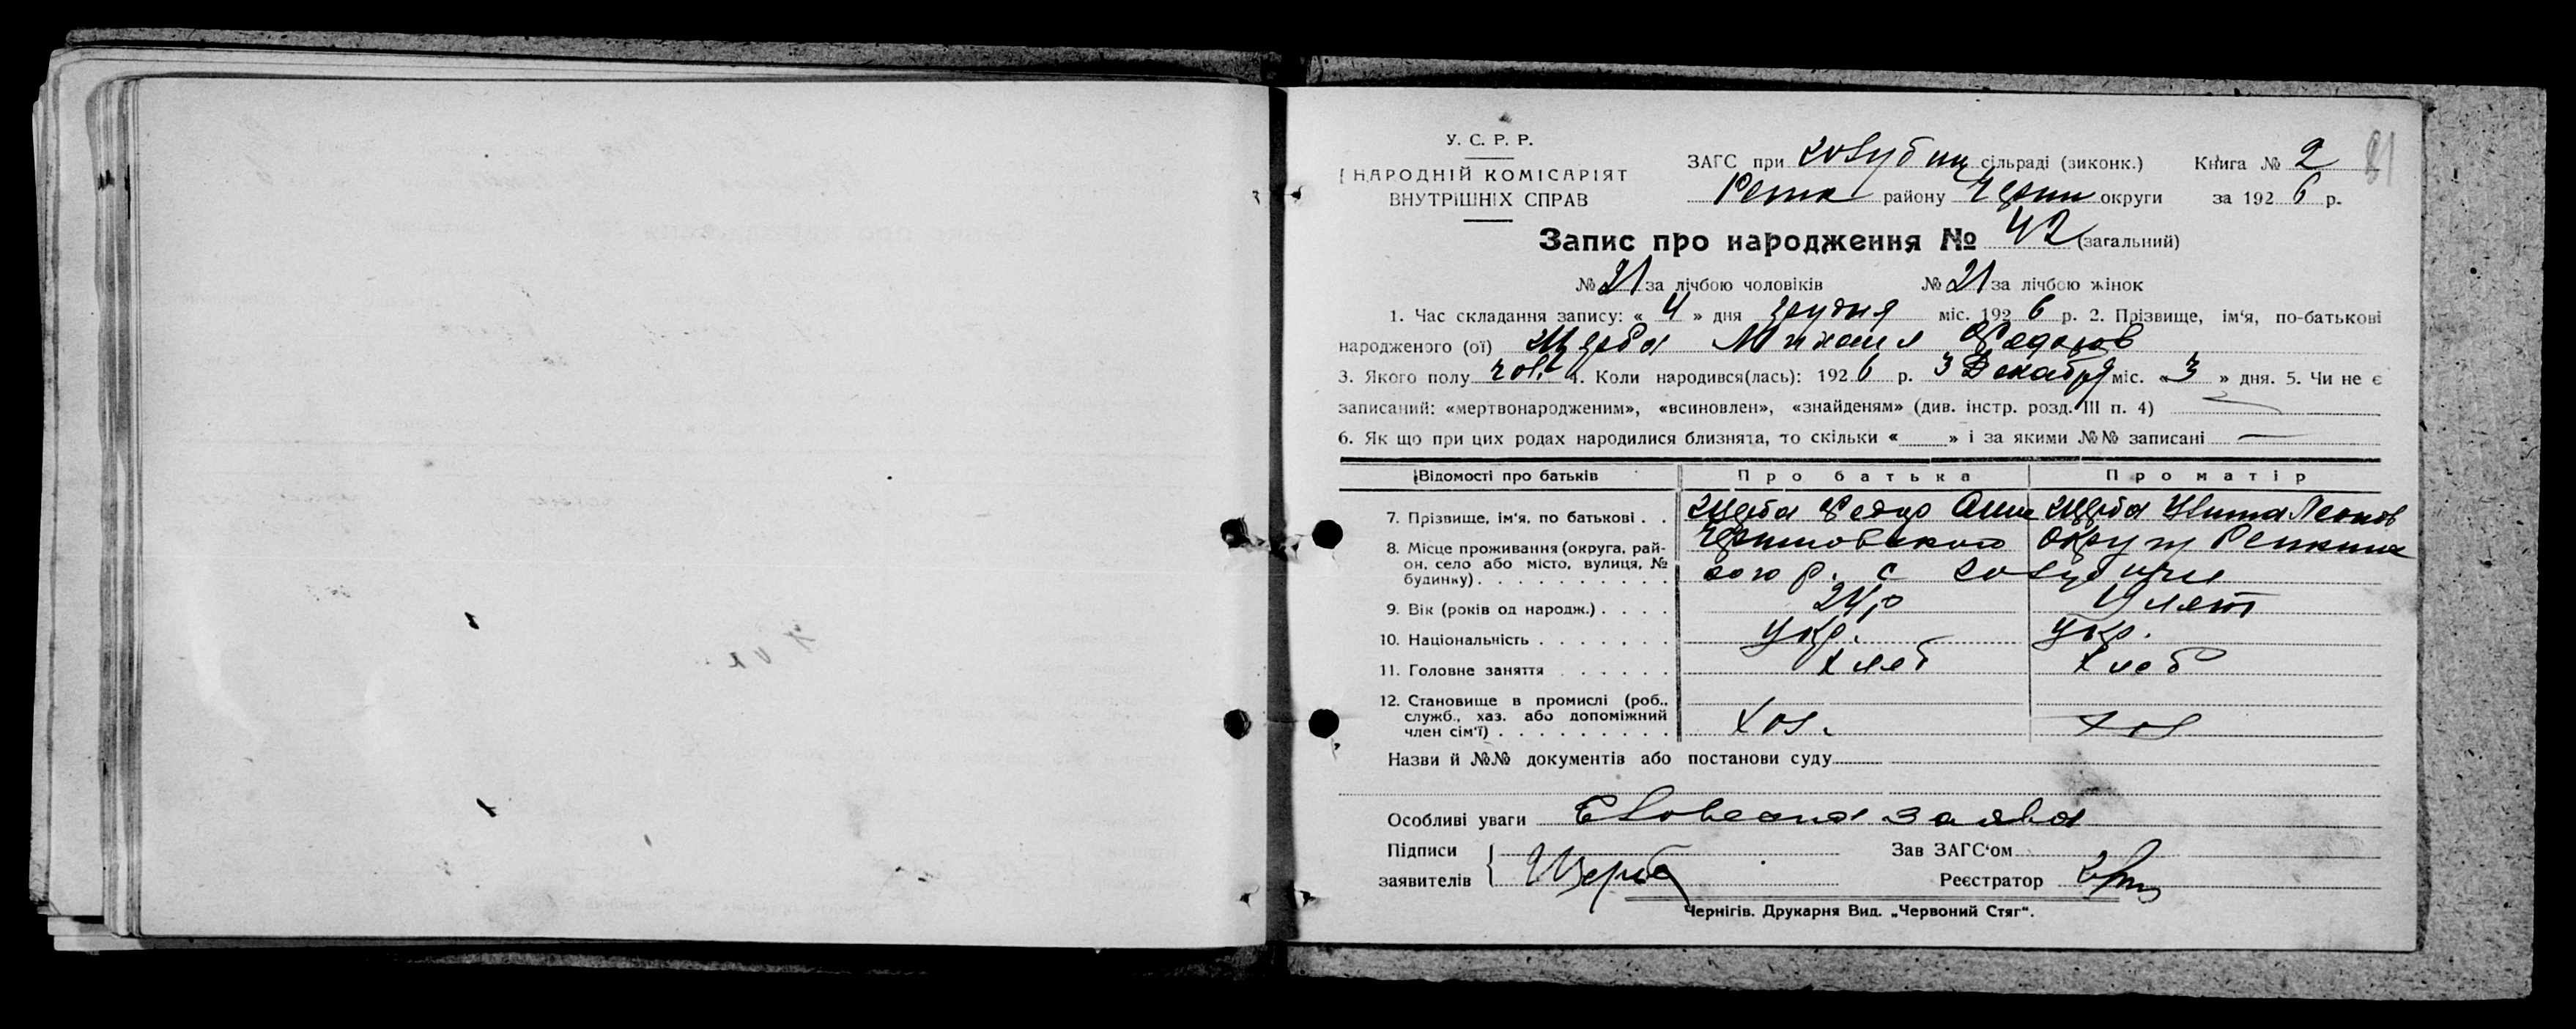 У. С. Р. Р.
НАРОДНІЙ КОМІСАРІЯТ
ВНУТРІШНІХ СПРАВ
ЗАГС при сільраді (виконк.) Книга № 2 81
Репк району Черни округи за 1926 р.
Запис про народження № 42 (загальний)
№ 21 за лічбою чоловіків № 21 за лічбою жінок
1. Час складання запису: « 4 » дня грудня міс. 1926 р. 2. Прізвище, ім'я, по-батькові
народженого (ої) Щерба Михаил Федоров
3. Якого полу чол. 4. Коли народився(лась): 1926 р. 3 Декабря міс. «3» дня. 5. Чи не є
записаний: «мертвонародженим», «всиновлен», «знайденям» (див. інстр. розд. III п. 4) —
6. Як що при цих родах народилися близнята, то скільки « » і за якими №№ записані —
Відомості про батьків Про батька Про матір
7. Прізвище, ім'я, по батькові . . Щерба Федор Щерба
8. Місце проживання (округа, рай- Черниговского Округи Репкинс
он, село або місто, вулиця, № кого р. с
будинку) . . . . . . . . . .
9. Вік (років од народж.) . . . .
10. Національність . . . . . . . Укр. Укр.
11. Головне заняття . . . . . . Хлеб Хлеб
12. Становище в промислі (роб.,
служб., хаз. або допоміжний Хоз. Хоз
член сім'ї) . . . . . . . . .
Назви й №№ документів або постанови суду
Особливі уваги Словесна заява
Підписи Зав ЗАГС'ом
заявителів Щерба Реєстратор
Чернігів. Друкарня Вид. „Червоний Стяг".